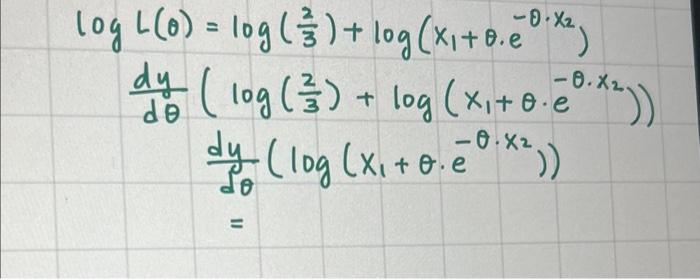 log L(θ) = log(2/3) + log(x₁ + θ.e^(-θ·x₂))
dy/dθ (log(2/3) + log(x₁ + θ·e^(-θ·x₂)))
dy/dθ (log(x₁ + θ.e^(-θ·x₂)))
=